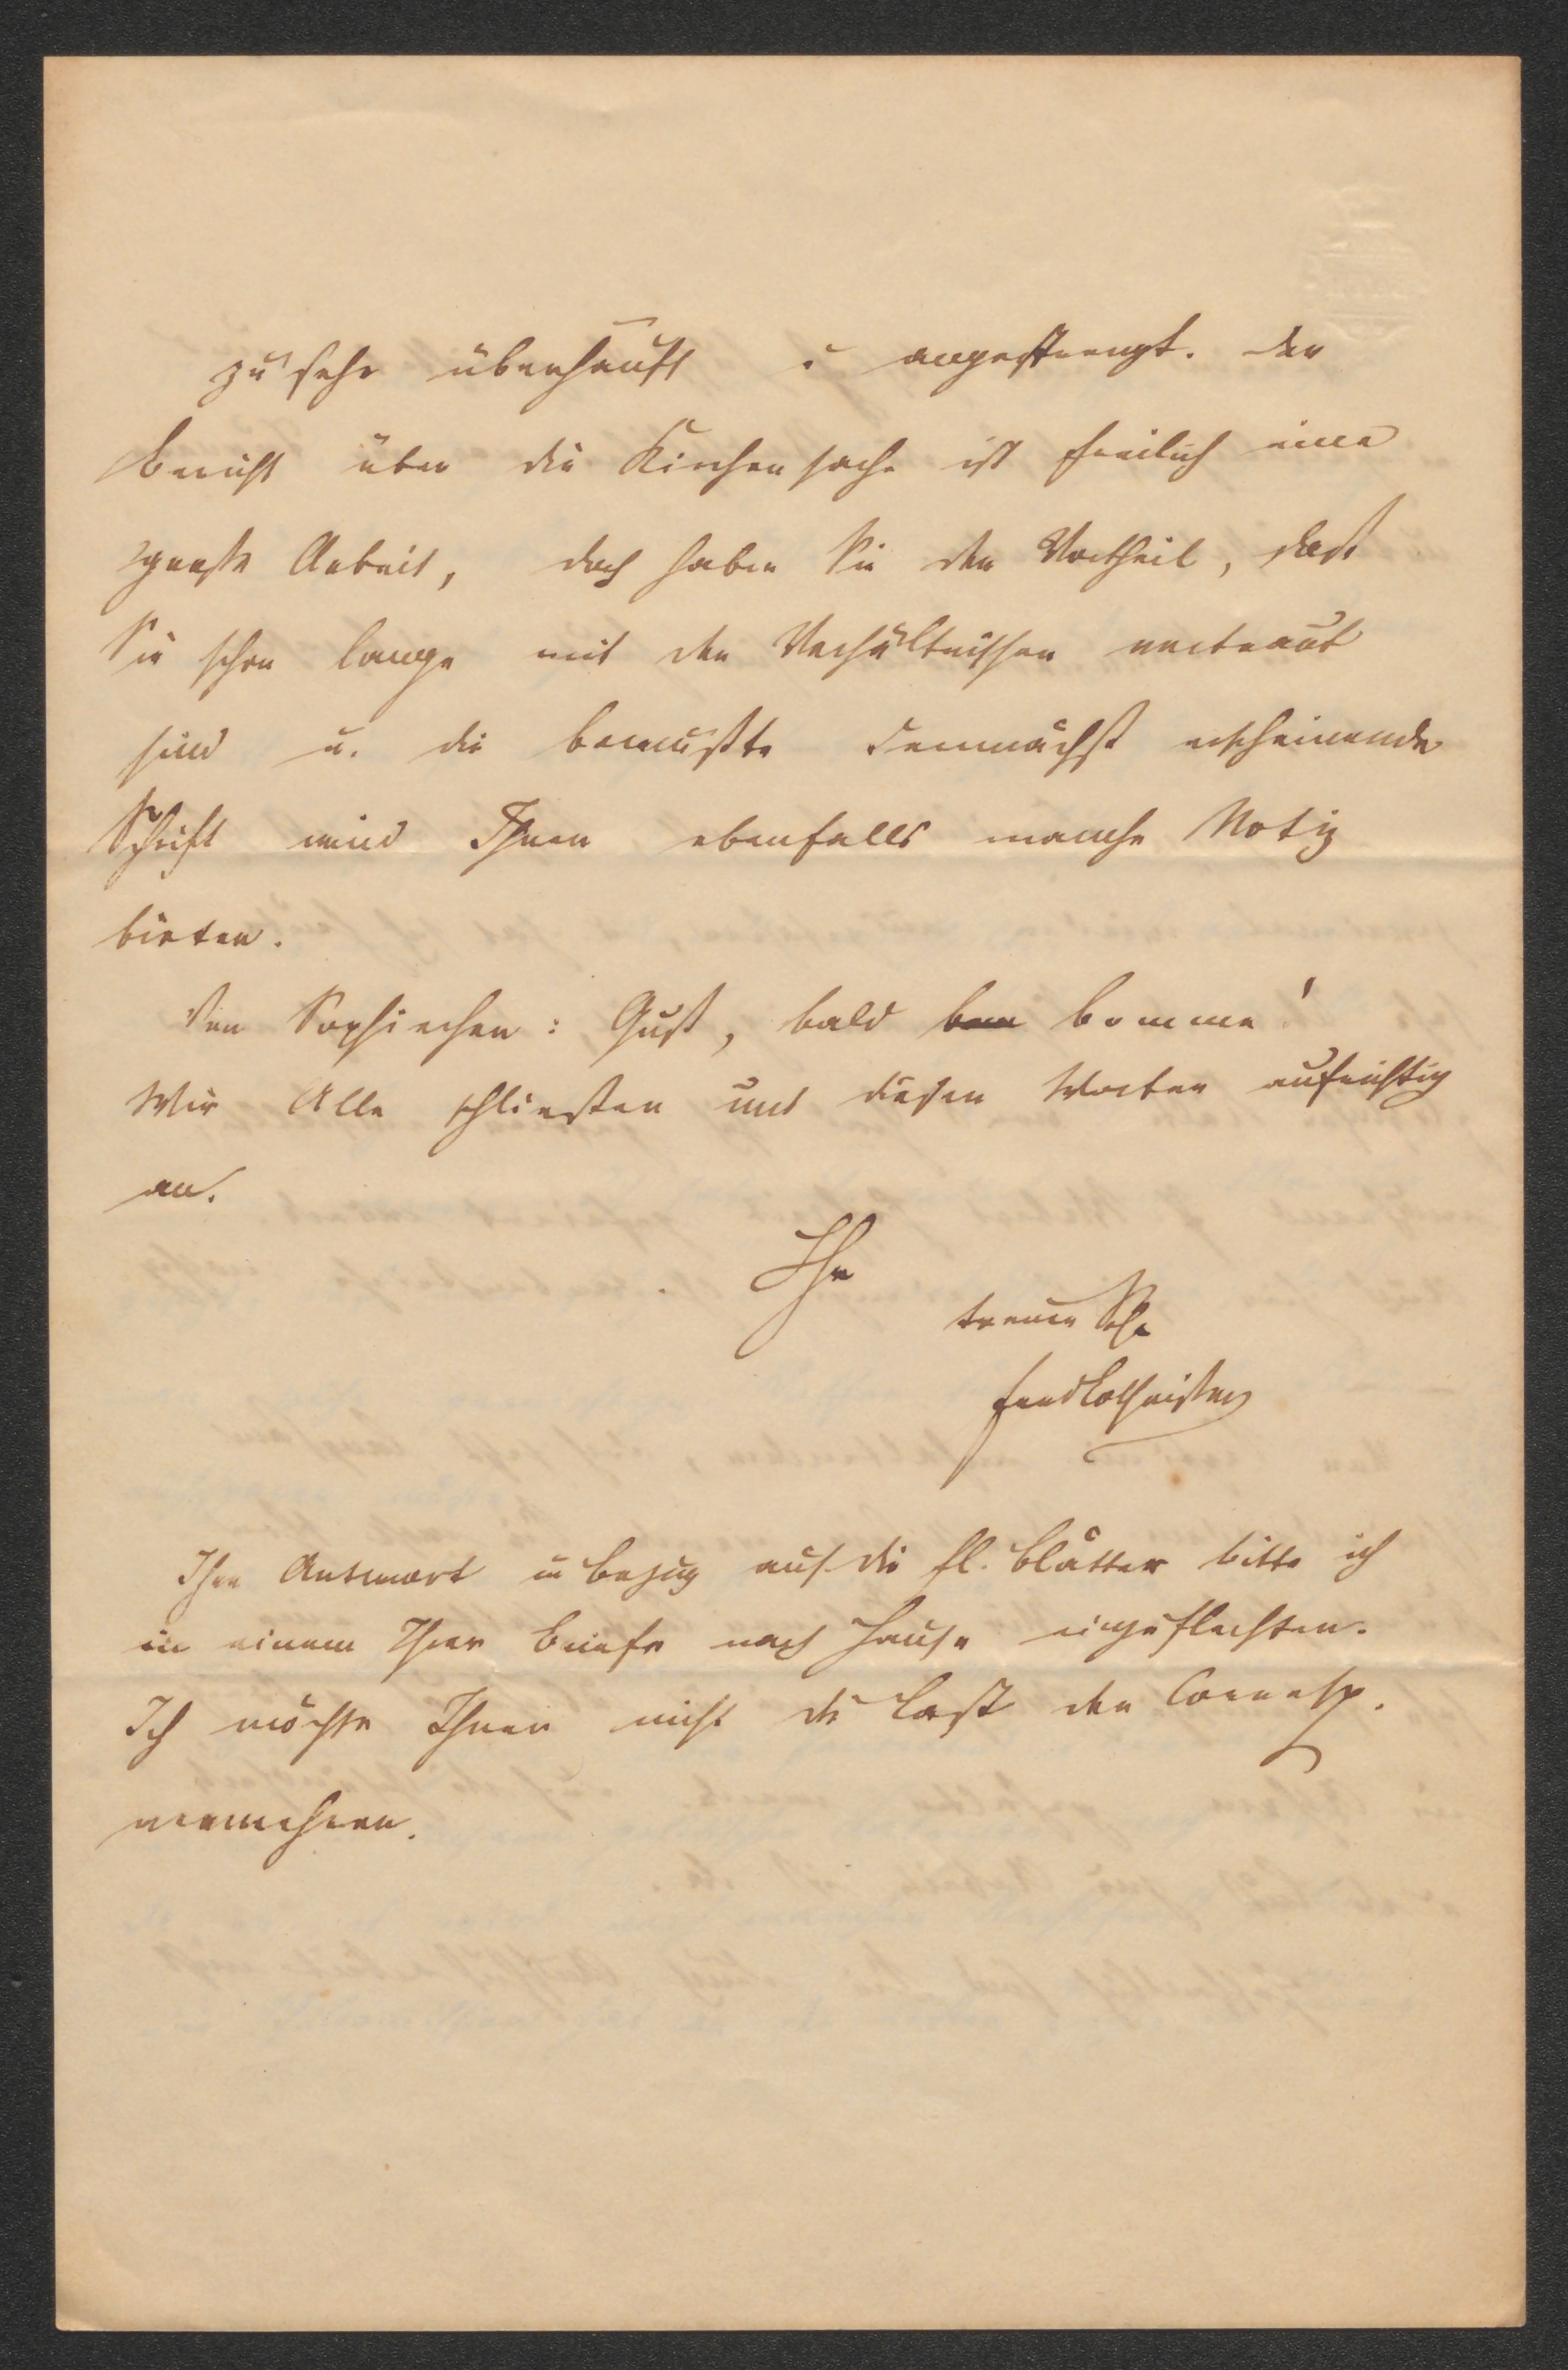 zu sehr überhäuft u angestrengt. Der
Bericht über die Kirchensache ist freilich eine
große Arbeit, doch haben Sie den Vortheil, daß
Sie schon lange mit den Verhältnissen vertraut
sind u. die bewußte demnächst erscheinende
Schrift wird Ihnen ebenfalls manche Notiz
bieten.
Von Sophiechen: Gust, bald bomme!
Wir Alle schließen uns diesen Worten aufrichtig
an.
Ihr
treuer
FerdLotheißen
Ihre Antwort in Bezug auf die fl. Blätter bitte ich
in einem Ihrer Briefe nach Hause einzuflechten.
Ich möchte Ihnen nicht die Last der Corresp.
vermehren.